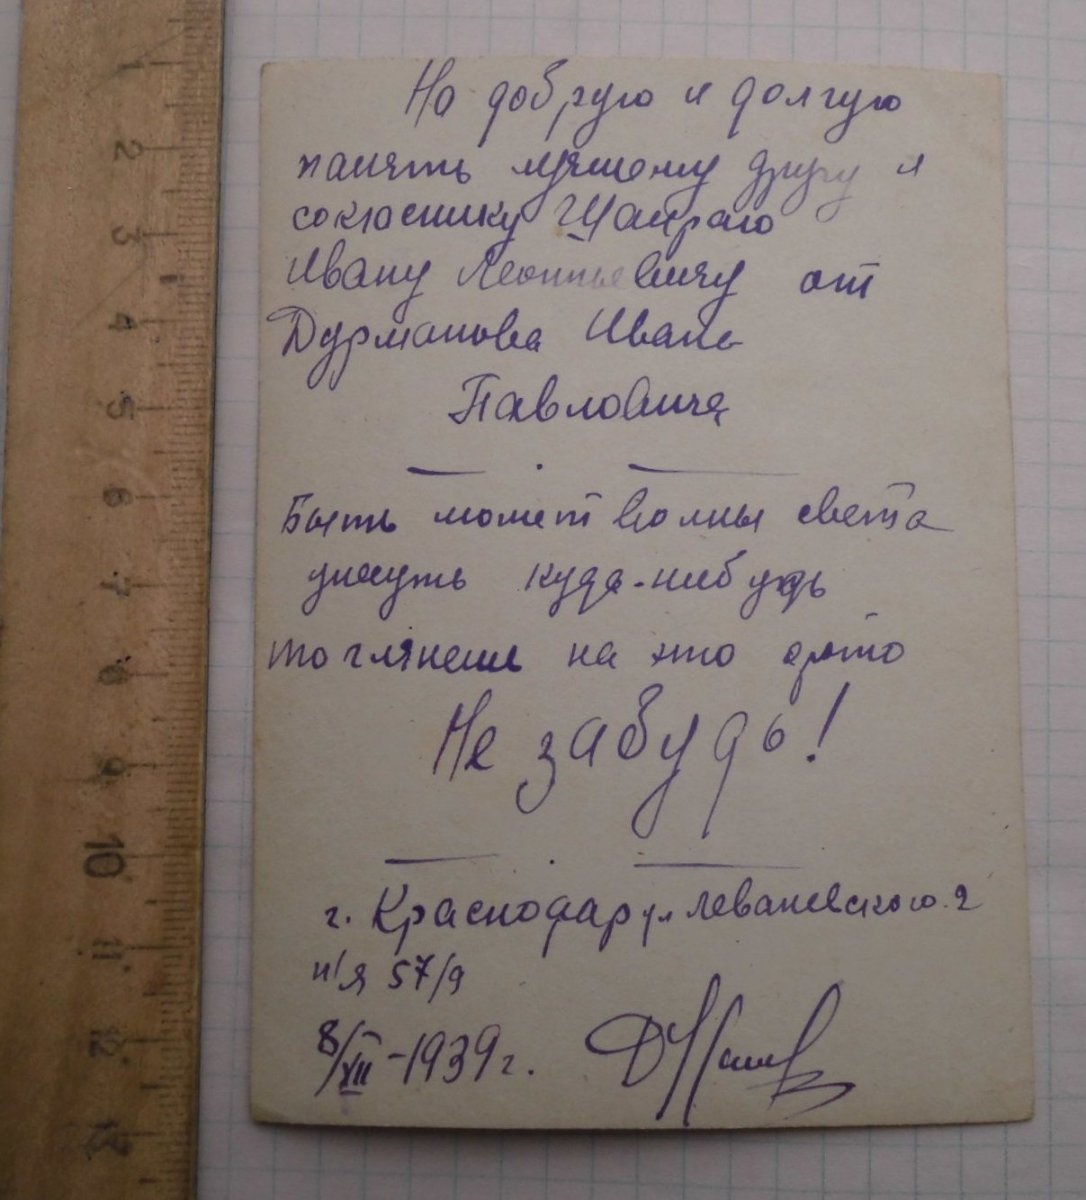 На добрую и долгую
память лучшему другу и
сокюснику Щапраю
Ивану Леонтьевичу от
Дурманова Ивана
Павловича
Быть может волны света
умчуть куда-нибудь
то глянешь на это фото
Не забудь!
г. Краснодар ул Леваневского. 2
п/я 57/9
8/XII-1939 г.
1
2
3
4
5
6
7
8
9
10
11
12
13